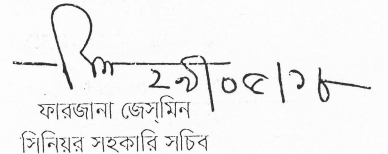 ২৯/০৫/১৮
ফারজানা জেস্‌মিন
সিনিয়র সহকারি সচিব